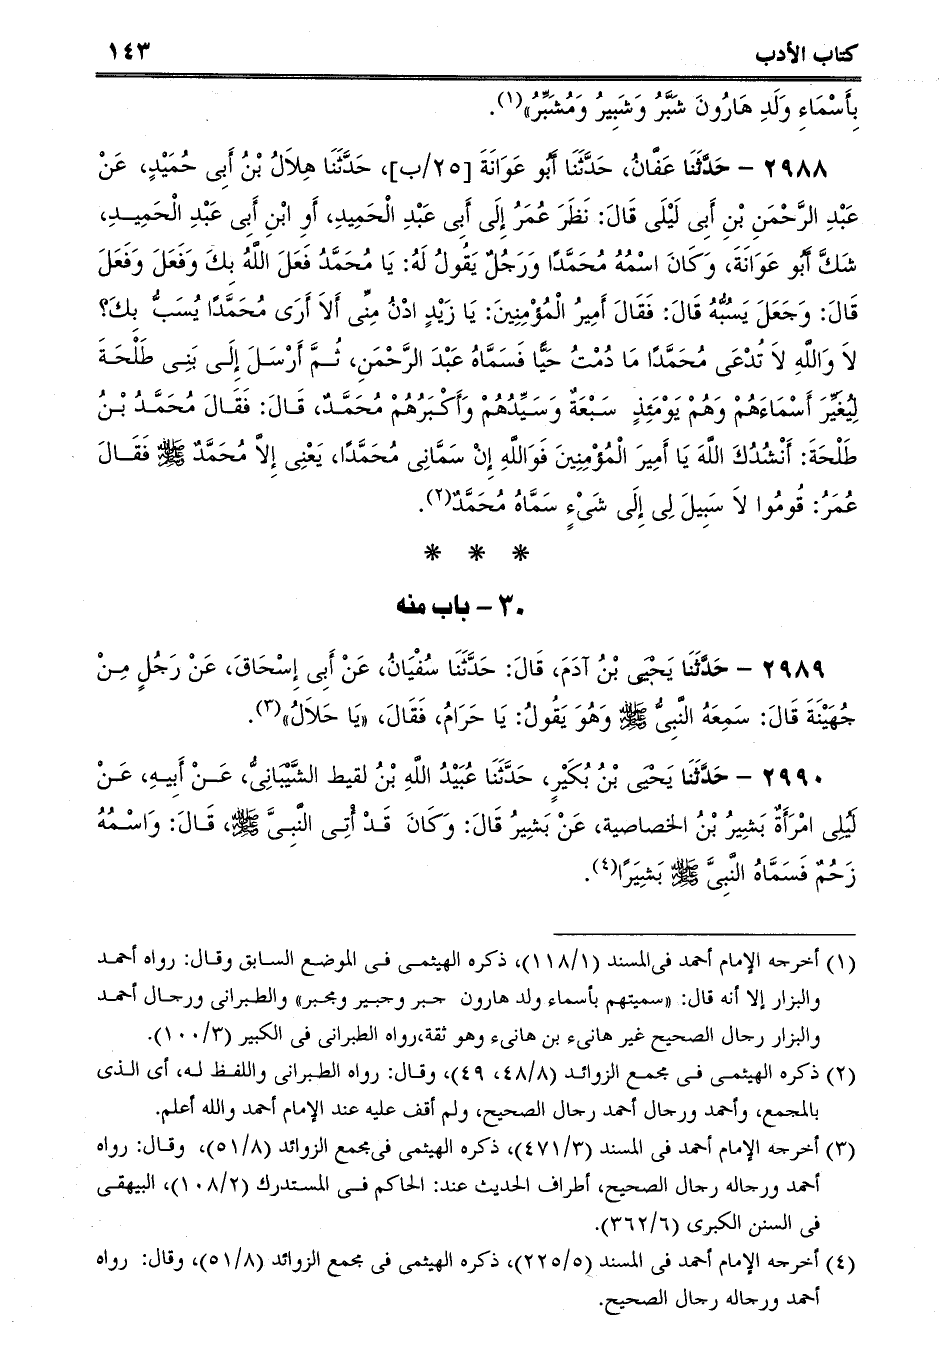 كتاب الأدب ١٤٣
بِأَسْمَاءِ وَلَدِ هَارُونَ شَبَّرُ وَشَبِيرُ وَمُشَبِّرُ»(١).
٢٩٨٨ – حَدَّثَنَا عَفَّانُ، حَدَّثَنَا أَبُو عَوَانَةَ [٢٥/ب]، حَدَّثَنَا هِلاَلُ بْنُ أَبِى حُمَيْدٍ، عَنْ
عَبْدِ الرَّحْمَنِ بْنِ أَبِى لَيْلَى قَالَ: نَظَرَ عُمَرُ إِلَى أَبِى عَبْدِ الْحَمِيدِ، أَوِ ابْنِ أَبِى عَبْدِ الْحَمِيدِ،
شَكَّ أَبُو عَوَانَةَ، وَكَانَ اسْمُهُ مُحَمَّدًا وَرَجُلٌ يَقُولُ لَهُ: يَا مُحَمَّدُ فَعَلَ اللَّهُ بِكَ وَفَعَلَ وَفَعَلَ
قَالَ: وَجَعَلَ يَسُبُّهُ قَالَ: فَقَالَ أَمِيرُ الْمُؤْمِنِينَ: يَا زَيْدٍ ادْنُ مِنِّى أَلاَ أَرَى مُحَمَّدًا يُسَبُّ بِكَ؟
لاَ وَاللَّهِ لاَ تُدْعَى مُحَمَّدًا مَا دُمْتُ حَيًّا فَسَمَّاهُ عَبْدَ الرَّحْمَنِ، ثُمَّ أَرْسَلَ إِلَى بَنِى طَلْحَةَ
لِيُغَيِّرَ أَسْمَاءَهُمْ وَهُمْ يَوْمَئِذٍ سَبْعَةٌ وَسَيِّدُهُمْ وَأَكْبَرُهُمْ مُحَمَّدٌ، قَالَ: فَقَالَ مُحَمَّدُ بْنُ
طَلْحَةَ: أَنْشُدُكَ اللَّهَ يَا أَمِيرَ الْمُؤْمِنِينَ فَوَاللَّهِ إِنْ سَمَّانِى مُحَمَّدًا، يَعْنِى إِلاَّ مُحَمَّدٌ ﷺ فَقَالَ
عُمَرُ: قُومُوا لاَ سَبِيلَ لِى إِلَى شَىْءٍ سَمَّاهُ مُحَمَّدٌ(٢).
* * *
٣٠ – باب منه
٢٩٨٩ – حَدَّثَنَا يَحْيَى بْنُ آدَمَ، قَالَ: حَدَّثَنَا سُفْيَانُ، عَنْ أَبِى إِسْحَاقَ، عَنْ رَجُلٍ مِنْ
جُهَيْنَةَ قَالَ: سَمِعَهُ النَّبِىُّ ﷺ وَهُوَ يَقُولُ: يَا حَرَامُ، فَقَالَ، «يَا حَلاَلُ»(٣).
٢٩٩٠ – حَدَّثَنَا يَحْيَى بْنُ بُكَيْرٍ، حَدَّثَنَا عُبَيْدُ اللَّهِ بْنُ لقيط الشَّيْبَانِىُّ، عَنْ أَبِيهِ، عَنْ
لَيْلِى امْرَأَةٌ بَشِيرُ بْنُ الخصاصية، عَنْ بَشِيرُ قَالَ: وَكَانَ قَدْ أُتِى النَّبِىَّ ﷺ، قَالَ: وَاسْمُهُ
زَحُمٌ فَسَمَّاهُ النَّبِىَّ ﷺ بَشِيَرًا(٤).
(١) أخرجه الإمام أحمد فى المسند (١١٨/١)، ذكره الهيثمى فى الموضع السابق وقال: رواه أحمد
والبزار إلا أنه قال: «سميتهم بأسماء ولد هارون جبر وجبير ومجبر» والطبرانى ورجال أحمد
والبزار رجال الصحيح غير هانىء بن هانىء وهو ثقة،رواه الطبرانى فى الكبير (١٠٠/٣).
(٢) ذكره الهيثمى فى مجمع الزوائد (٤٨/٨، ٤٩)، وقال: رواه الطبرانى واللفظ له، أى الذى
بالمجمع، وأحمد ورجال أحمد رجال الصحيح، ولم أقف عليه عند الإمام أحمد والله أعلم.
(٣) أخرجه الإمام أحمد فى المسند (٤٧١/٣)، ذكره الهيثمى فى مجمع الزوائد (٥١/٨)، وقال: رواه
أحمد ورجاله رجال الصحيح، أطراف الحديث عند: الحاكم فى المستدرك (١٠٨/٢)، البيهقى
فى السنن الكبرى (٣٦٢/٦).
(٤) أخرجه الإمام أحمد فى المسند (٢٢٥/٥)، ذكره الهيثمى فى مجمع الزوائد (٥١/٨)، وقال: رواه
أحمد ورجاله رجال الصحيح.